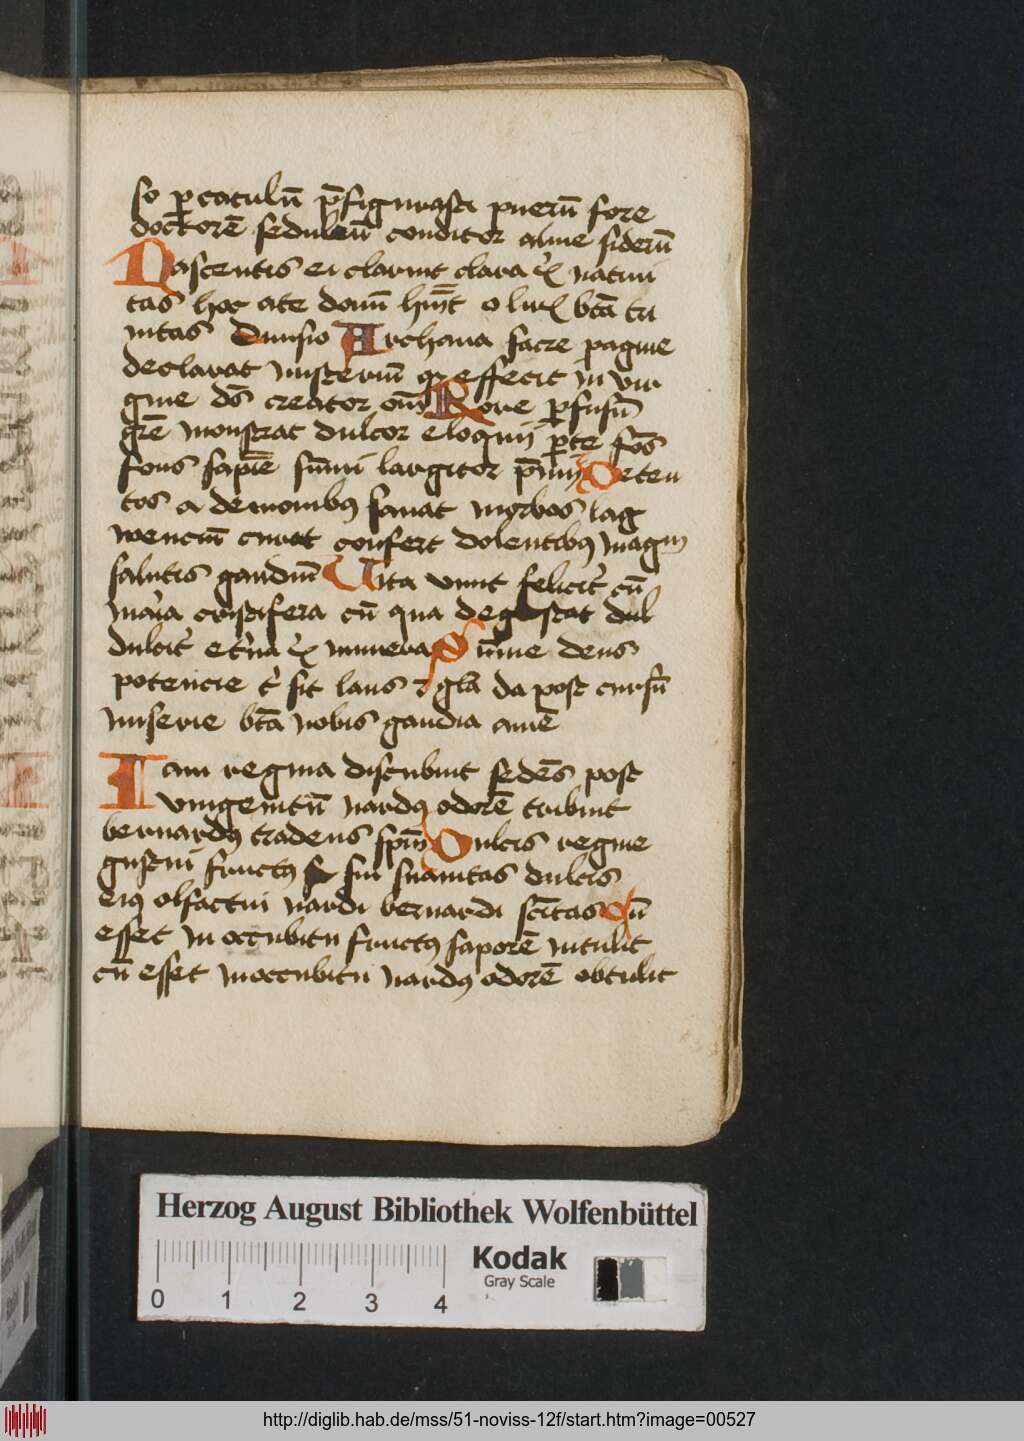 so p catulū p̄figurasti puerū fore
doctorē sedulū conditor alme siderū
Nascentis ei claruit clara xͥ natiui
tas hoc ate domū hm̄t o lux bt̄a tri
nitas Diuisio Archana sacre pagine
declarat misteriū q effecit in vir
gine ds̄ creator om̄ Rore pfusū
gr̄e monstrat dulcor eloquij pte fōs
fons sapīe sūmi largitor p̄mij Deten
tos a demonibꝯ sanat morbos lag
wenciū curat confert dolentibꝯ magn
salutis gaudiū Uita viuit felicit̄ cū
mar̄ia cristifera cū qua degustat dul
dulcit̄ et̄na xͥ munera Sūme deus
potencie t̄ sit laus ⁊ gl̄a da post cursū
miserie bt̄a nobis gaudia amē
Iam regina discubuit sedēs post
vnigenitū nardꝯ odorē tribuit
bernardꝯ tradens sp̄m Dulcis regine
gustui fructꝯ sui suauitas dulcis
eiꝯ olfactui nardi bernardi sc̄itas Cū
esset in accubitu fructꝯ saporē intulit
cū esset in accubitu nardꝯ odorē obtulit
Herzog August Bibliothek Wolfenbüttel
Kodak
Gray Scale
0 1 2 3 4
http://diglib.hab.de/mss/51-noviss-12f/start.htm?image=00527